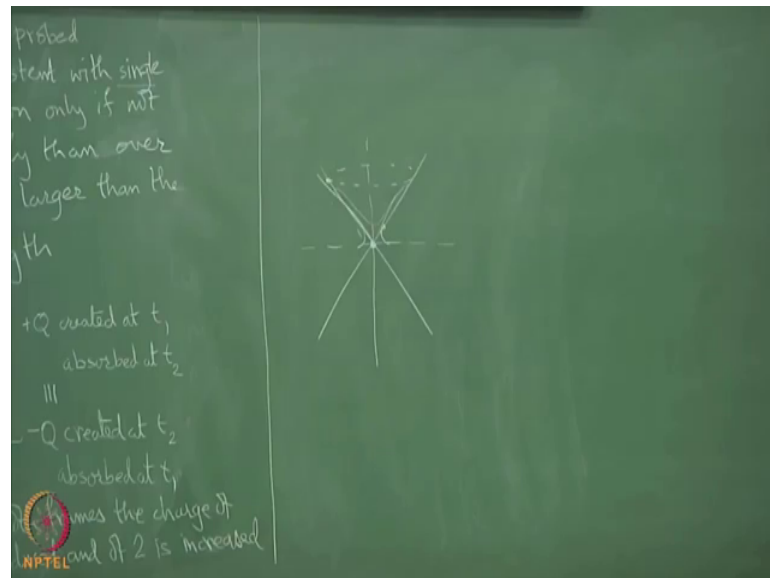 probed
stent with single
on only if not
y than over
larger than the
gth
+Q created at t₁
absorbed at t₂
|||
-Q created at t₂
absorbed at t₁
frames the charge of
and of 2 is increased
NPTEL